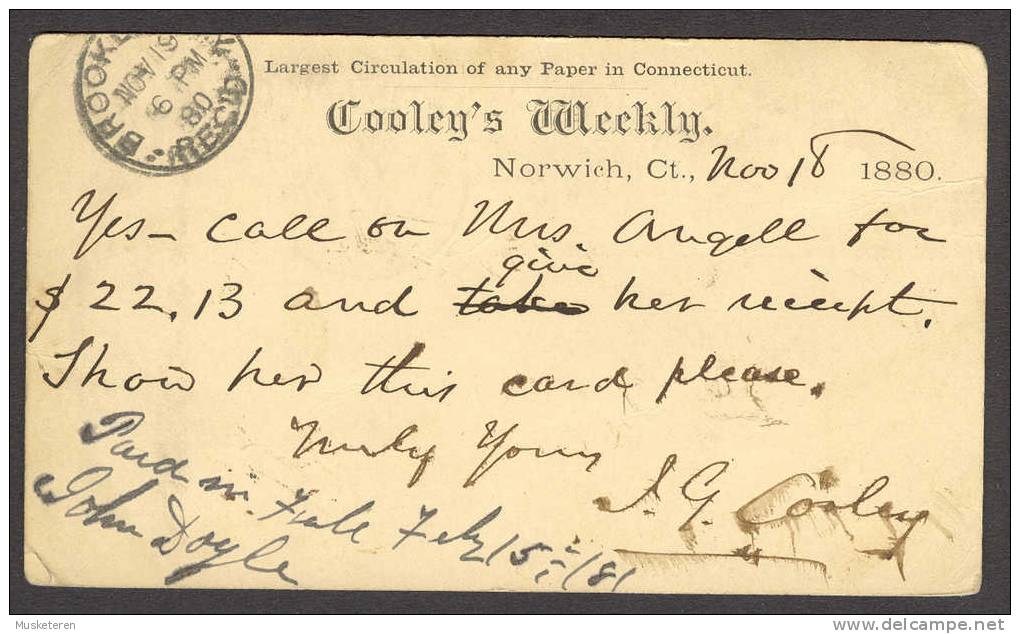 BROOKL Y.
NOV 19
6 PM
80
REC'D
Largest Circulation of any Paper in Connecticut.
Cooley's Weekly.
Norwich, Ct., Nov 18 1880.
Yes - Call on Mrs. Angell for
give
$22.13 and take her reciept.
Show her this card please.
Truly Yours
J. G. Cooley
Paid in Full Feby 15 /81
John Doyle
Musketeren
www.delcampe.net